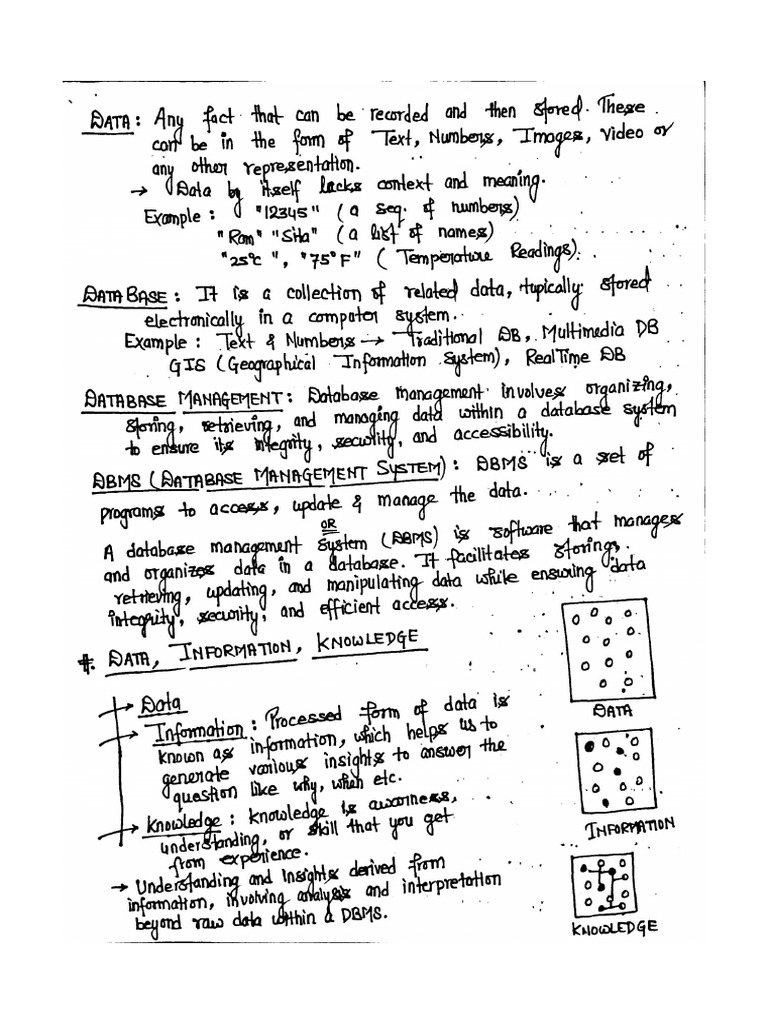 DATA: Any fact that can be recorded and then stored. These
can be in the form of Text, Numbers, Images, video or
any other representation.
→ Data by itself lacks context and meaning.
Example: "12345" (a seq. of numbers)
"Ram" "Sita" (a list of names)
"25°C", "75°F" (Temperature Readings).
DATABASE: It is a collection of related data, typically stored
electronically in a computer system.
Example: Text & Numbers → Traditional DB, Multimedia DB
GIS (Geographical Information System), RealTime DB
DATABASE MANAGEMENT: Database management involves organizing,
storing, retrieving, and managing data within a database system
to ensure its integrity, security, and accessibility.
DBMS (DATABASE MANAGEMENT SYSTEM): DBMS is a set of
programs to access, update & manage the data.
OR
A database management system (DBMS) is software that manages
and organizes data in a database. It facilitates storing,
retrieving, updating, and manipulating data while ensuring data
integrity, security, and efficient access.
#. DATA, INFORMATION, KNOWLEDGE
→ Data
→ Information: Processed form of data is
known as information, which helps us to
generate various insights to answer the
question like why, when etc.
→ Knowledge: Knowledge is awarness,
understanding, or skill that you get
from experience.
→ Understanding and insights derived from
information, involving analysis and interpretation
beyond raw data within a DBMS.
DATA
INFORMATION
KNOWLEDGE